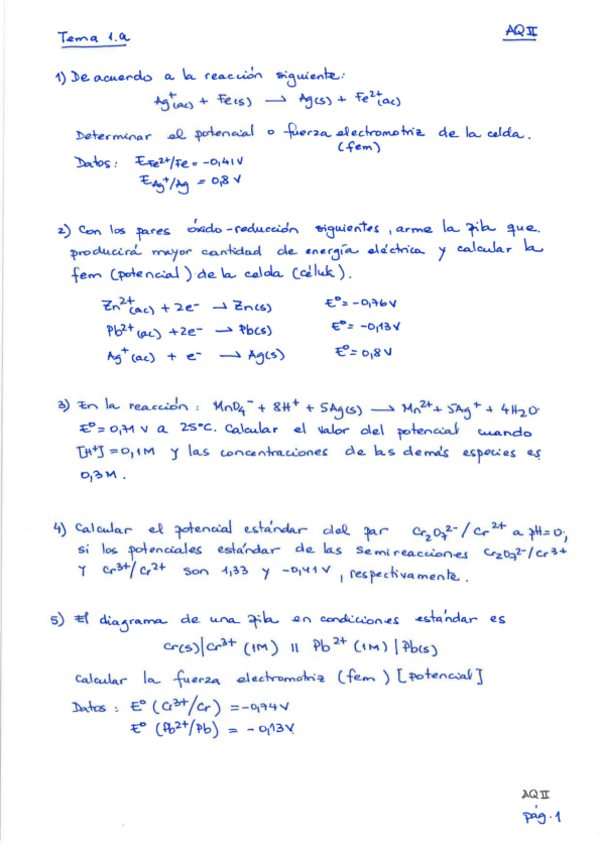 Tema 1.a
AQ II
1) De acuerdo a la reacción siguiente:
Ag⁺(ac) + Fe(s) → Ag(s) + Fe²⁺(ac)
Determinar el potencial o fuerza electromotriz de la celda.
(fem)
Datos: E Fe²⁺/Fe = -0,41V
E Ag⁺/Ag = 0,8 V
2) Con los pares óxido-reducción siguientes, arme la pila que
producirá mayor cantidad de energía eléctrica y calcular la
fem (potencial) de la celda (célula).
Zn²⁺(ac) + 2e⁻ → Zn(s) E⁰ = -0,76V
Pb²⁺(ac) + 2e⁻ → Pb(s) E⁰ = -0,13V
Ag⁺(ac) + e⁻ → Ag(s) E⁰ = 0,8V
3) En la reacción: MnO₄⁻ + 8H⁺ + 5Ag(s) → Mn²⁺ + 5Ag⁺ + 4H₂O
E⁰ = 0,71 V a 25ºC. Calcular el valor del potencial cuando
[H⁺] = 0,1M y las concentraciones de las demás especies es
0,3M.
4) Calcular el potencial estándar del par Cr₂O₇²⁻/Cr²⁺ a pH=0,
si los potenciales estándar de las semireacciones Cr₂O₇²⁻/Cr³⁺
y Cr³⁺/Cr²⁺ son 1,33 y -0,41V, respectivamente.
5) El diagrama de una pila en condiciones estándar es
Cr(s)|Cr³⁺ (1M) || Pb²⁺ (1M) | Pb(s)
Calcular la fuerza electromotriz (fem) [potencial]
Datos: E⁰ (Cr³⁺/Cr) = -0,74V
E⁰ (Pb²⁺/Pb) = -0,13V
AQ II
pág. 1